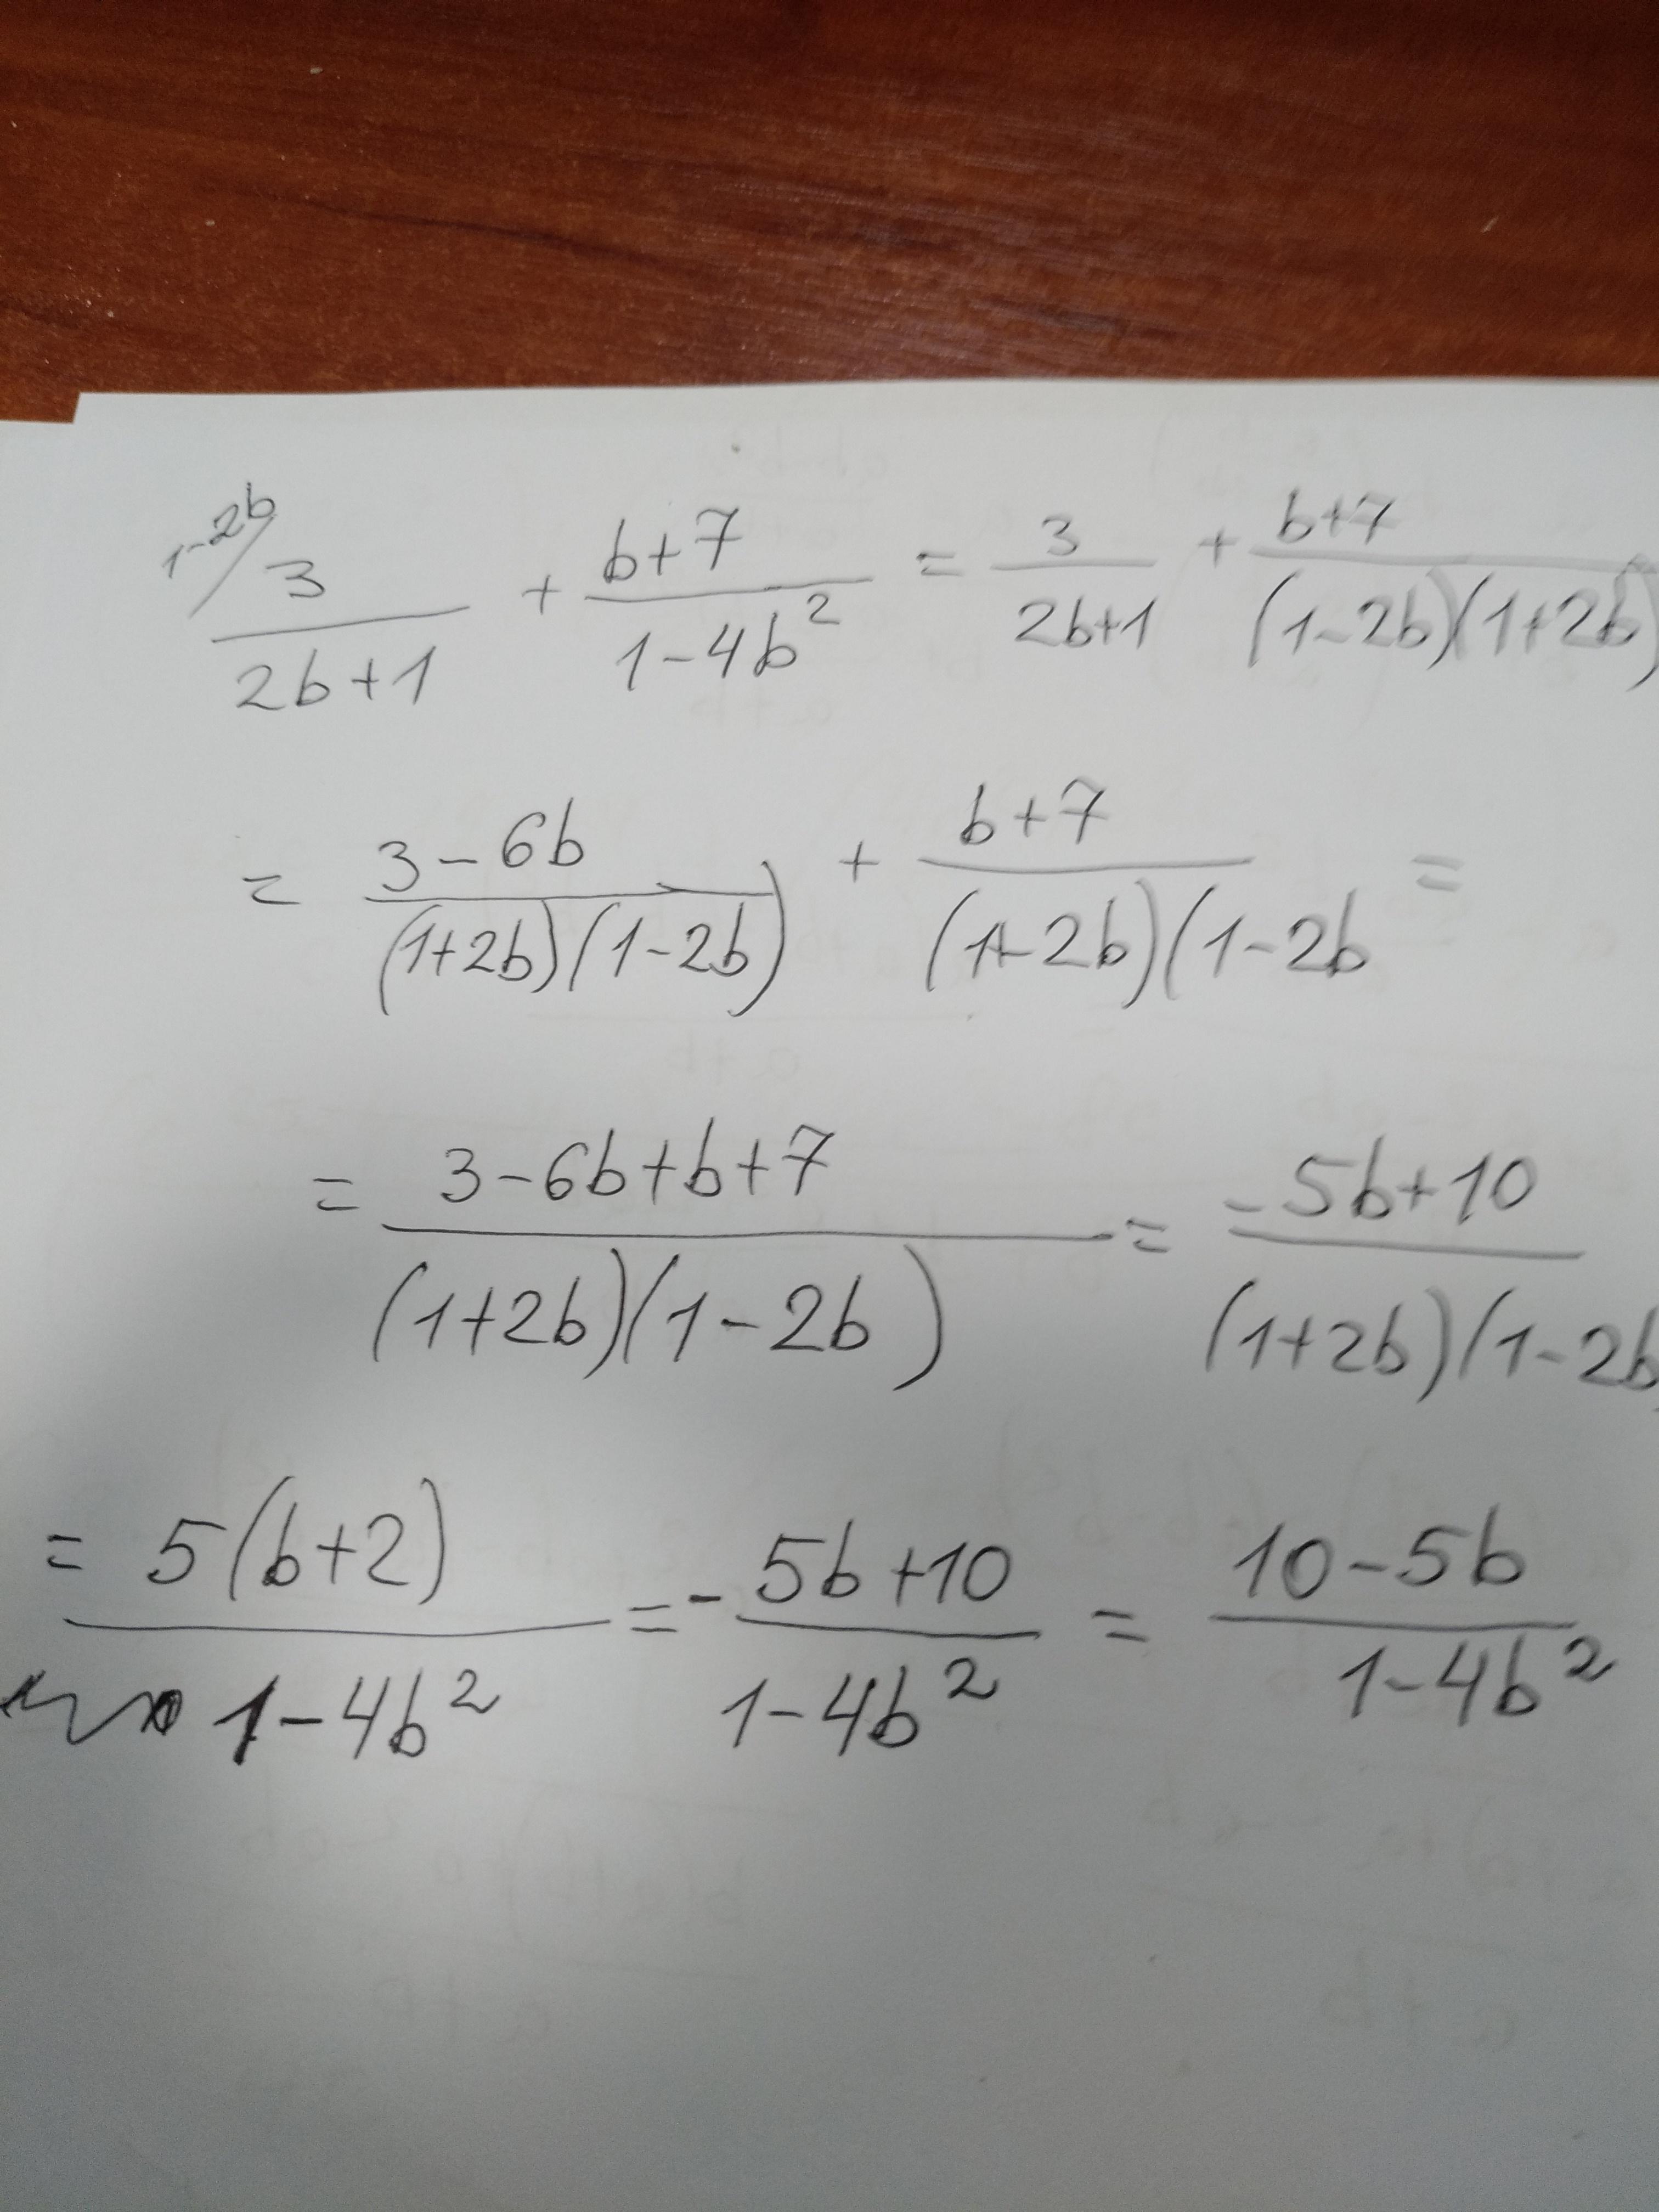 1-2b/ 3/(2b+1) + (b+7)/(1-4b²) = 3/(2b+1) + (b+7)/((1-2b)(1+2b)
= (3-6b)/((1+2b)(1-2b)) + (b+7)/((1+2b)(1-2b =
= (3-6b+b+7)/((1+2b)(1-2b)) = (-5b+10)/((1+2b)(1-2b
= 5(b+2)/(1-4b²) = - (5b+10)/(1-4b²) = (10-5b)/(1-4b²)